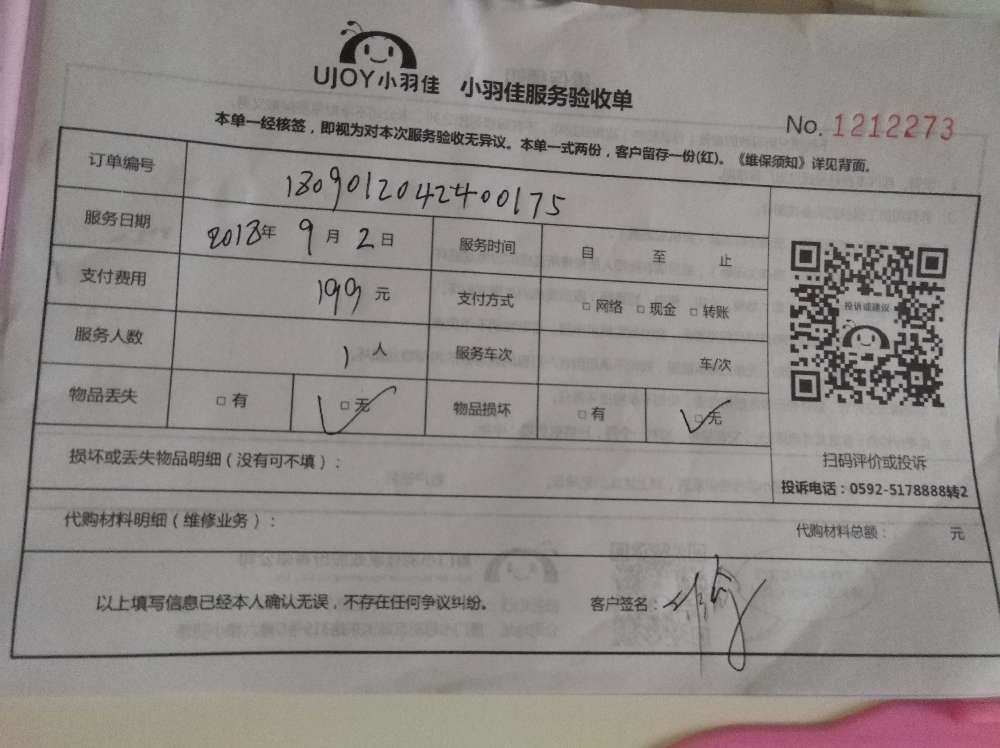 UJOY小羽佳 小羽佳服务验收单
No. 1212273
本单一经核签，即视为对本次服务验收无异议。本单一式两份，客户留存一份(红)。《维保须知》详见背面。
订单编号 1809012042400175
服务日期 2018年 9 月 2 日 服务时间 自 至 止
支付费用 199 元 支付方式 □ 网络 □ 现金 □ 转账
服务人数 1 人 服务车次 车/次
物品丢失 □ 有 □ 无 物品损坏 □ 有 □ 无
投诉或建议
扫码评价或投诉
投诉电话：0592-5178888转2
损坏或丢失物品明细（没有可不填）：
代购材料明细（维修业务）： 代购材料总额： 元
以上填写信息已经本人确认无误，不存在任何争议纠纷。 客户签名：